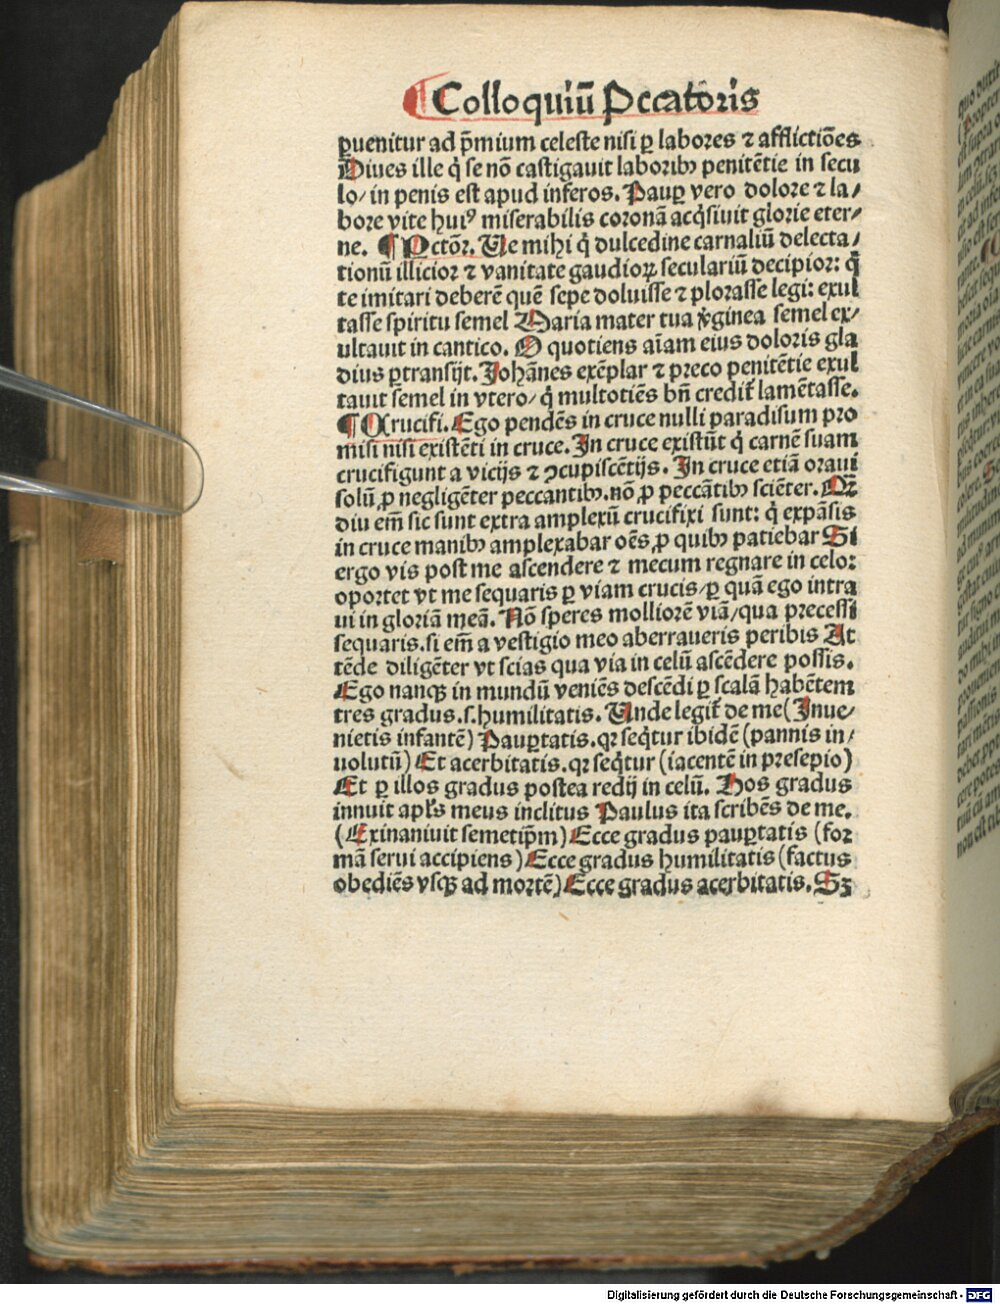 ¶ Colloquiū Pccatoris
ꝑuenitur ad p̄mium celeste nisi ꝑ labores ⁊ afflictiōes
Diues ille q̇ se nō castigauit laboribꝰ penitētie in secu
lo/ in penis est apud inferos. Pauꝑ vero dolore ⁊ la/
bore vite huiꝰ miserabilis coronā acq̇siuit glorie eter/
ne. ¶ Pctōr. Ue mihi q̇ dulcedine carnaliū delecta/
tionū illicior ⁊ vanitate gaudioꝝ seculariū decipior: q̇
te imitari deberē quē sepe doluisse ⁊ plorasse legi: exul
tasse spiritu semel Maria mater tua v̄ginea semel ex/
ultauit in cantico. O quotiens aīam eius doloris gla
dius ꝑtransijt. Johānes exēplar ⁊ preco penitētie exul
tauit semel in vtero/ q̇ multotiēs bn̄ credit̄ lamētasse.
¶ Crucifi. Ego pendēs in cruce nulli paradisum pro
misi nisi existēti in cruce. In cruce existūt q̇ carnē suam
crucifigunt a vicijs ⁊ ꝯcupiscētijs. In cruce etiā oraui
solū ꝓ negligēter peccantibꝰ. nō ꝓ peccātibꝰ sciēter. Qꝛ
diu em̄ sic sunt extra amplexū crucifixi sunt: q̇ expāsis
in cruce manibꝰ amplexabar oēs ꝓ quibꝰ patiebar Si
ergo vis post me ascendere ⁊ mecum regnare in celo:
oportet vt me sequaris ꝑ viam crucis/ ꝑ quā ego intra
ui in gloriā meā. Nō speres molliorē viā/ qua precessi
sequaris. si em̄ a vestigio meo aberraueris peribis At
tēde diligēter vt scias qua via in celū ascēdere possis.
Ego nanqꝫ in mundū veniēs descēdi ꝑ scalā habētem
tres gradus. s. humilitatis. Unde legit̄ de me (Inue/
nietis infantē) Pauꝑtatis. qꝛ seq̇tur ibidē (pannis in/
uolutū) Et acerbitatis. qꝛ seq̇tur (iacentē in presepio)
Et ꝑ illos gradus postea redij in celū. Hos gradus
innuit apl̄s meus inclitus Paulus ita scribēs de me.
(Exinaniuit semetip̄m) Ecce gradus pauꝑtatis (for
mā serui accipiens) Ecce gradus humilitatis (factus
obediēs vsqꝫ ad mortē) Ecce gradus acerbitatis. Sꝫ
Digitalisierung gefördert durch die Deutsche Forschungsgemeinschaft - DFG